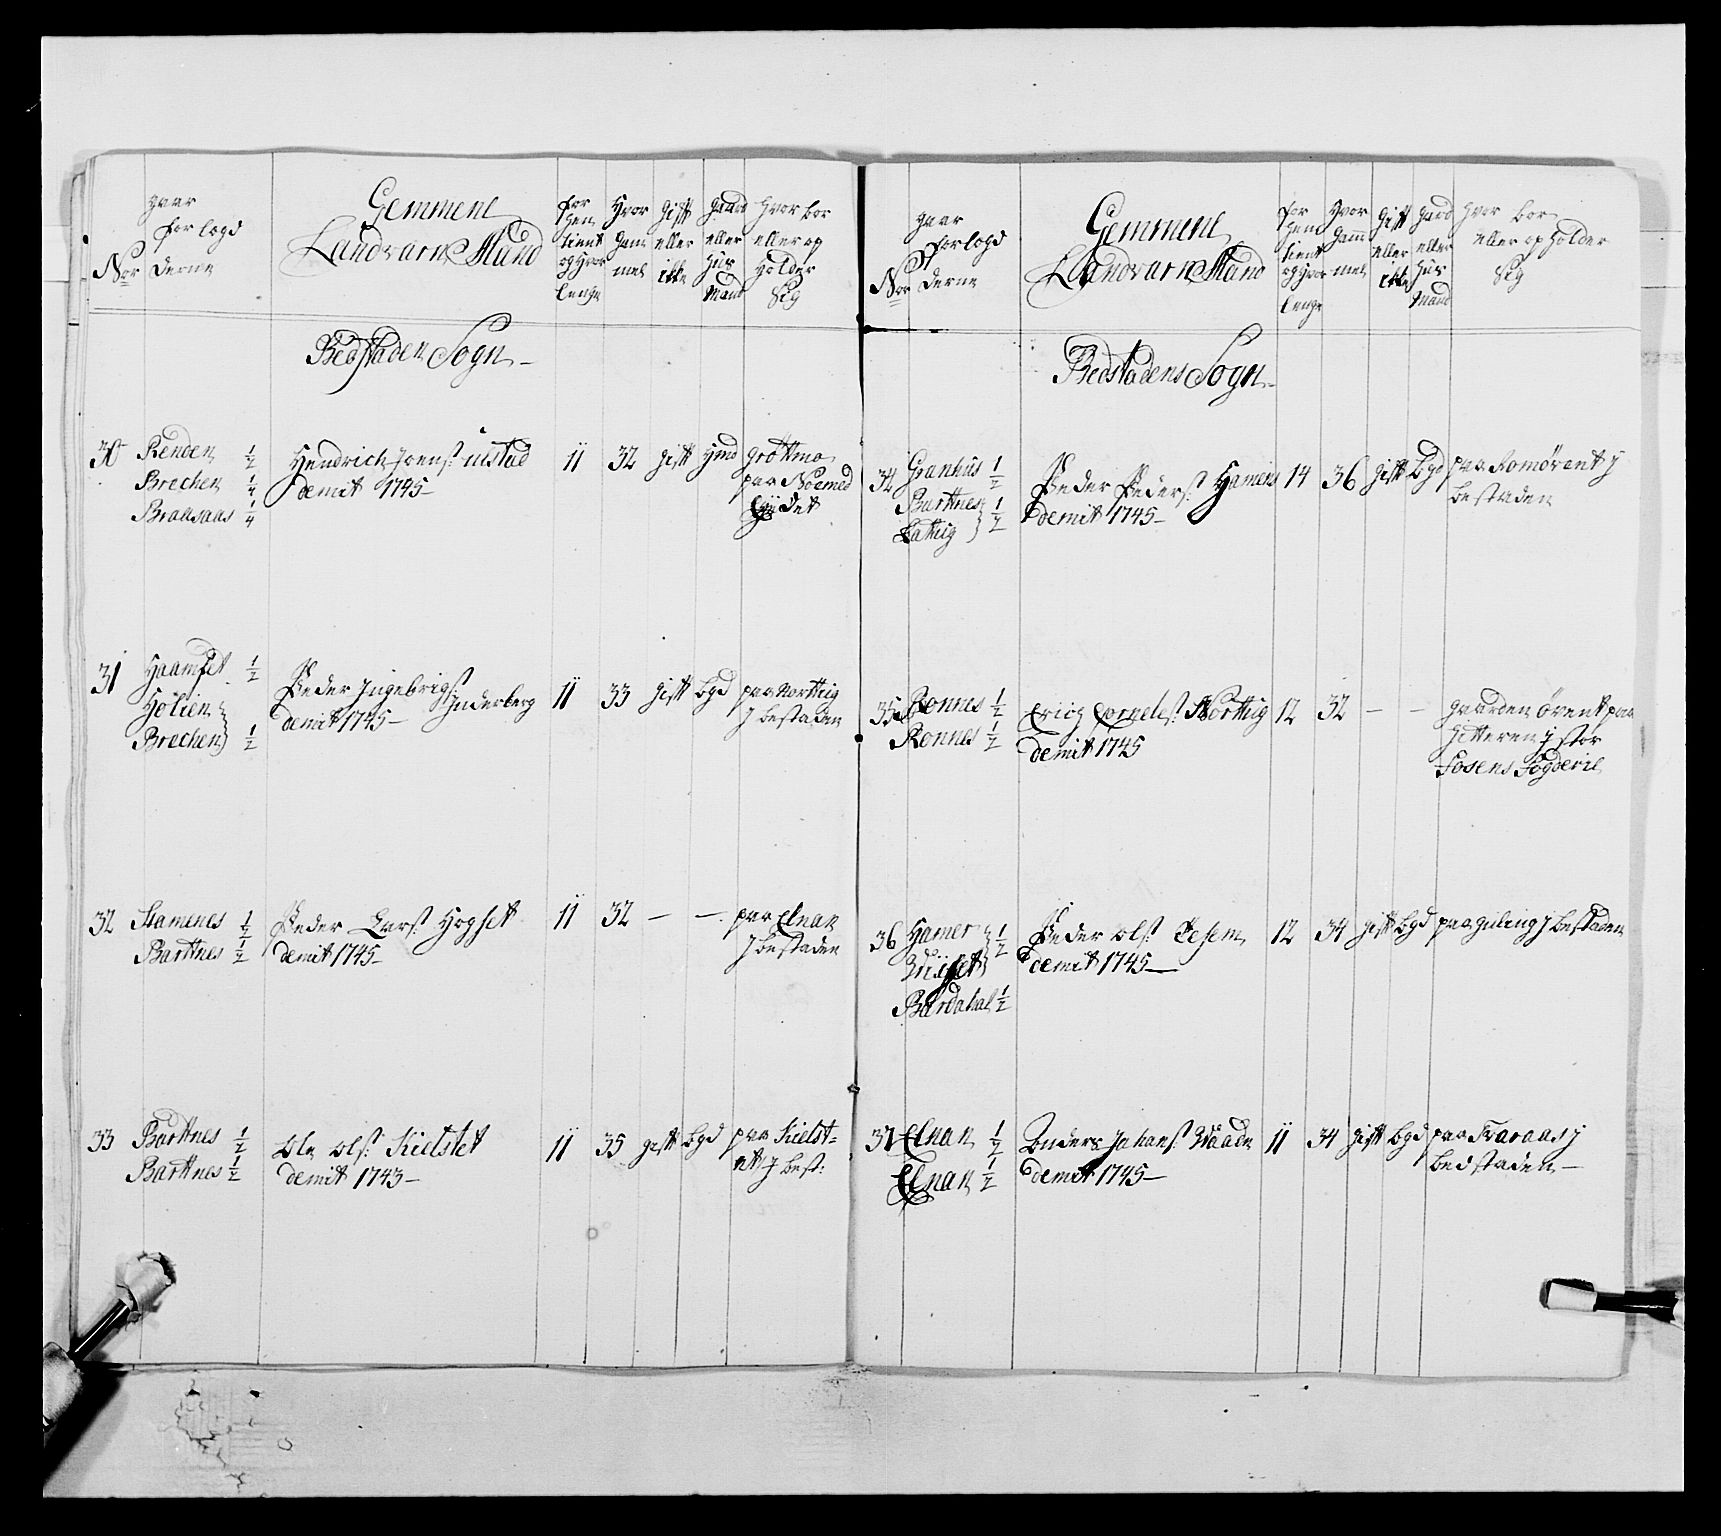 gaar
forlogd
Nor derne
Gemmene
Landvarn Mand
for
Hen
tient
og Hvor
lenge
Hvor
Gam
mel
gift
eller
ikke
gaard
eller
Hus
Mand
Hvor bor
eller op
Holder
Sig
Bedstaden Sogn
30 Renden 1/2
Brechen 1/4
Braasaas 1/4
Hendrich Joens: Ulstad
demit 1745
11 32 gift Hmd grøttma
paa Noemed
Eydet
31 Haamset 1/2
Holien
Brechen } 1/2
Peder Ingebrigs: Inderberg
demit 1745
11 33 gift bgd paa Norttig
J bestaden
32 Stamenes 1/2
Barttnes 1/2
Peder Lars: Hogset
demit 1745
11 32 — — paa Elnan
J bestaden
33 Barttnes 1/2
Barttnes 1/2
Ole Ols: Kielstet
demit 1743
11 35 gift bgd paa Kielst=
et J best:
gaar
forlogd
Nor derne
Gemmene
Landvarn Mand
for
Hen
tient
og Hvor
lenge
Hvor
Gamm
mel
Gift
eller
ikke
gard
eller
Hus
Mand
Hvor bor
eller op Holder
Sig
Bedstadens Sogn
34 Granhus 1/2
Barttnes
Lattig } 1/2
Peder Peders: Hamens
demit 1745
14 36 gift bgd paa Romørent J
bestaden
35 Ronnes 1/2
Ronnes 1/2
Erich Cornels: Norttig
demit 1745
12 32 — — gaarden Ørent paa
Hitteren J stør
Fosens Fogderie
36 Hamer
} 1/2
Bardahal 1/2
Peder Ols: Tesem
demit 1745
12 34 gift bgd paa guling J bestaden
37 Elnan 1/2
Elnan 1/2
Anders Johans: Waaden
demit 1745
11 34 gift bgd paa Fraraas J
bedstaden